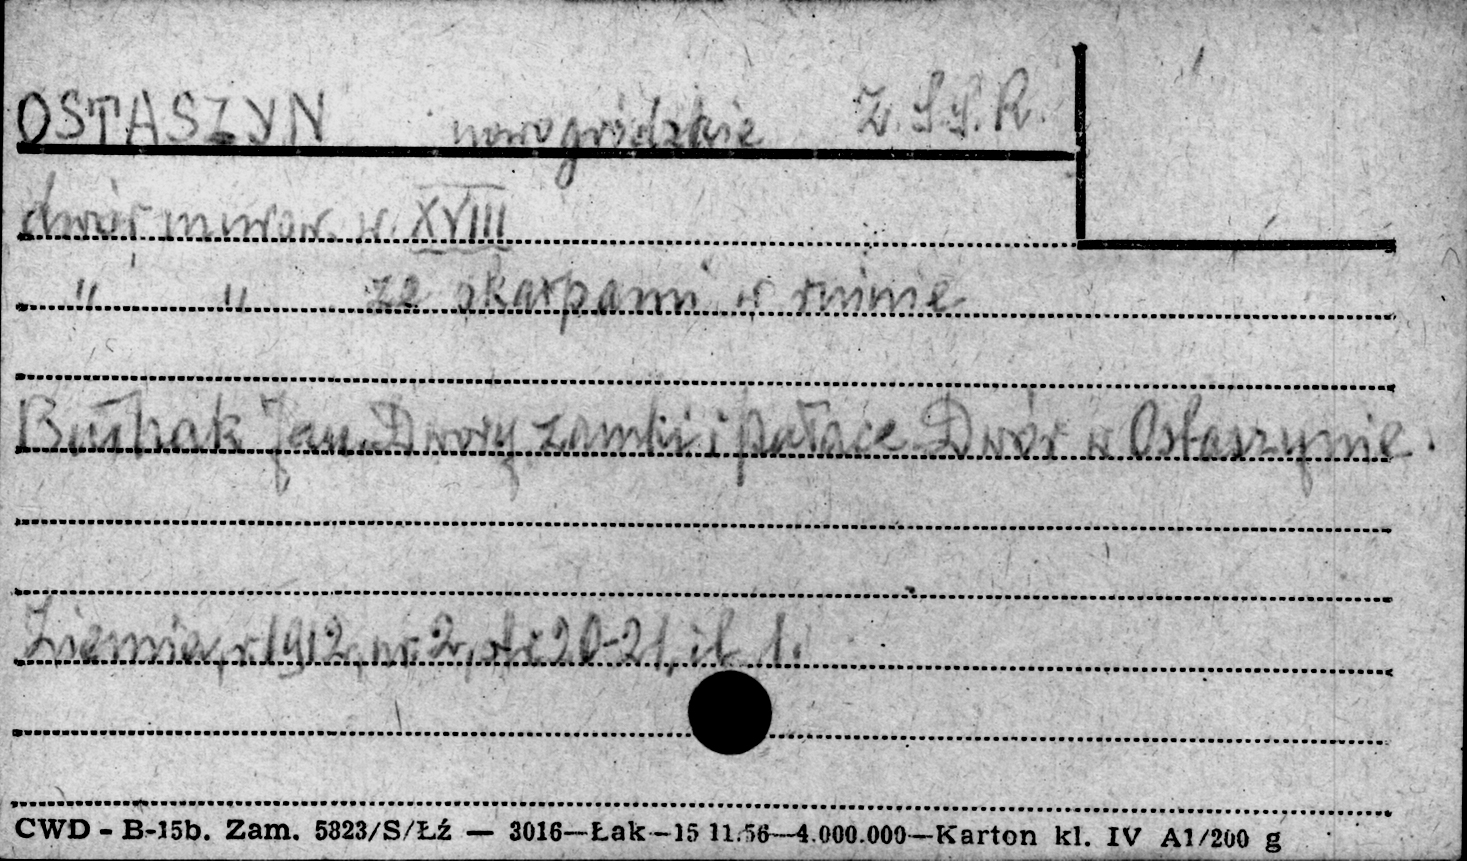 OSTASZYN nowogródzkie Z.S.S.R.
dwór murow. w. XVIII
" " ze skarpami w ruinie
Bułhak Jan. Dwory zamki i pałace Dwór w Ostaszynie.
Ziemia, r. 1912, nr. 2, str 20-21, il. 1.
CWD - B-15b. Zam. 5823/S/Łź — 3016—Łak—15 11.56—4.000.000—Karton kl. IV A1/200 g